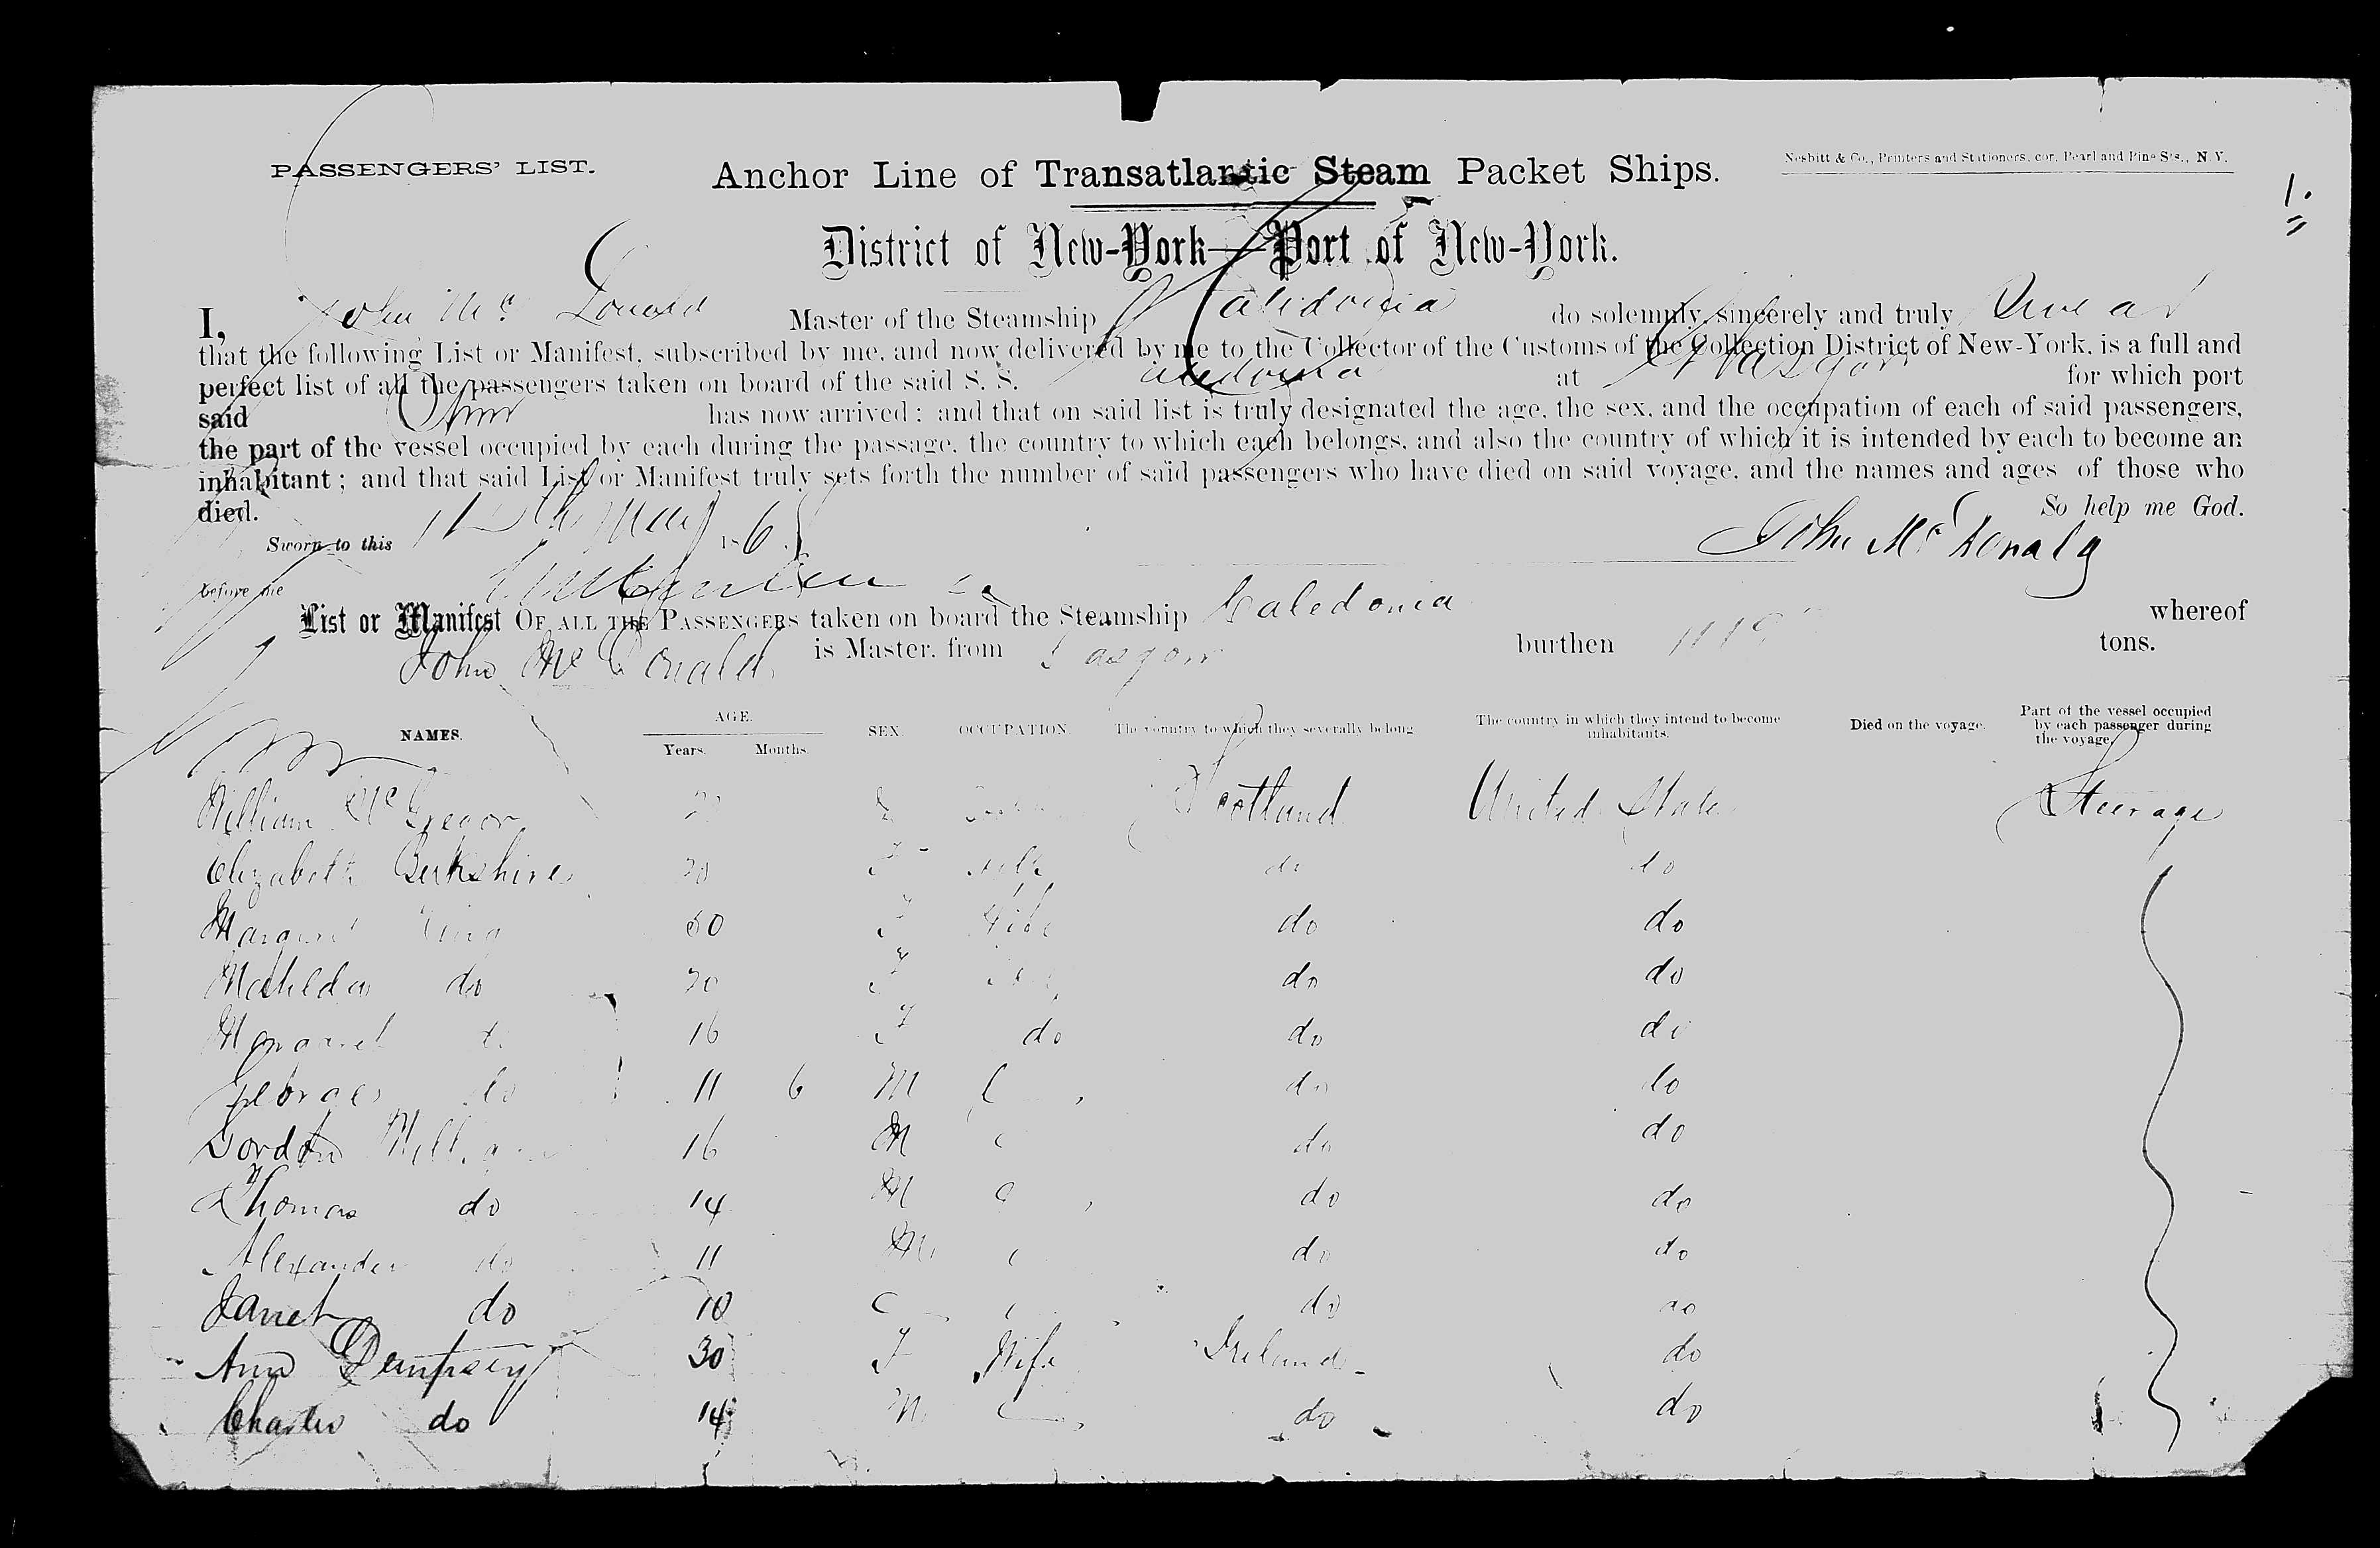 PASSENGERS' LIST.
Anchor Line of Transatlantic Steam Packet Ships.
Nesbitt & Co., Printers and Stationers, cor. Pearl and Pine Sts., N. Y.
1.
District of New-York—Port of New-York.
I, John Mc Donald Master of the Steamship Caledonia do solemnly, sincerely and truly Swear
that the following List or Manifest, subscribed by me, and now delivered by me to the Collector of the Customs of the Collection District of New-York, is a full and
perfect list of all the passengers taken on board of the said S. S. Caledonia at Glasgow for which port
said has now arrived; and that on said list is truly designated the age, the sex, and the occupation of each of said passengers,
the part of the vessel occupied by each during the passage, the country to which each belongs, and also the country of which it is intended by each to become an
inhabitant; and that said List or Manifest truly sets forth the number of said passengers who have died on said voyage, and the names and ages of those who
died. So help me God.
Sworn to this May 186 John McDonald
before me
List or Manifest OF ALL THE PASSENGERS taken on board the Steamship Caledonia whereof
John McDonald is Master, from Glasgow burthen tons.
NAMES. AGE. Years. Months. SEX. OCCUPATION. The country to which they severally belong. The country in which they intend to become inhabitants. Died on the voyage. Part of the vessel occupied by each passenger during the voyage.
William McGregor Scotland United States Steerage
Elizabeth Berkshire F do do
Margaret King F Wife do do
Mathilda do 20 F do do
Margaret do 16 F do do do
George do 11 6 M do do
Gordon 16 M do do
Thomas do 14 M do do
Alexander do 11 M do do
Janet do 10 do do
Ann Dempsey 30 F Wife Ireland do
Charles do 14 M do do